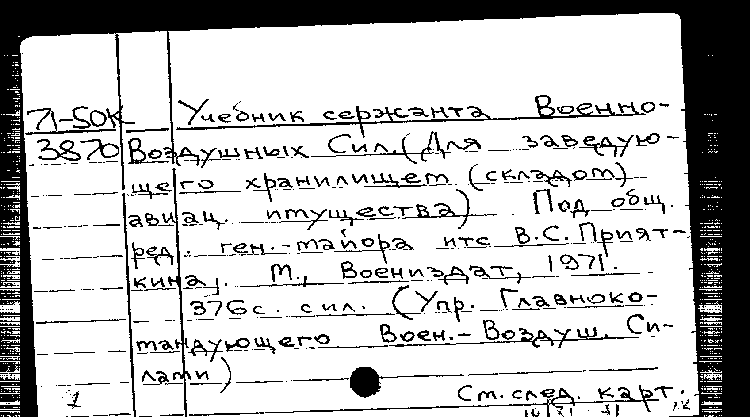 71-50К Учебник сержанта Военно-
3870 Воздушных Сил. (Для заведую-
щего хранилищем (складом)
авиац. имущества) Под общ.
ред. ген.-майора итс В.С. Прият-
кина,. М., Воениздат, 1971.
376 с. с ил. (Упр. Главноко-
мандующего Воен.-Воздуш. Си-
лами)
1 См. след. карт.